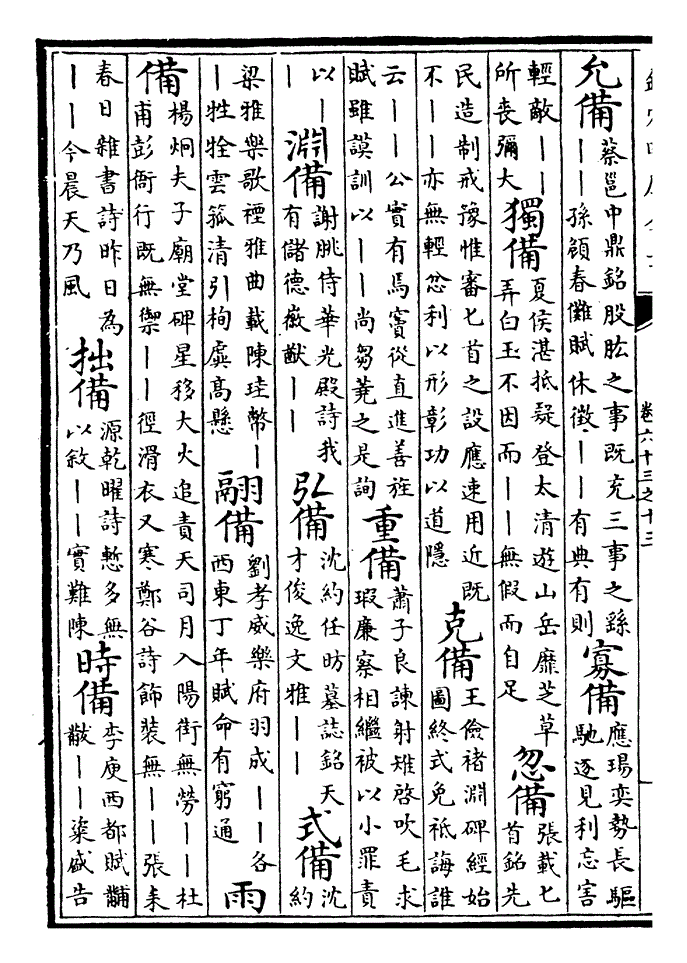 卷六十三之十三
允備
蔡邕中鼎銘股肱之事既充三事之繇
——孫頠春儺賦休徵——有典有則
寡備
應瑒奕勢長驅
馳逐見利忘害
輕敵——
所喪彌大
獨備
夏侯湛抵疑登太清遊山岳靡芝草
弄白玉不因而——無假而自足
忽備
張載七
首銘先
民造制戒豫惟審匕首之設應速用近既
不——亦無輕忿利以形彰功以道隱
克備
王儉褚淵碑經始
圖終式免袛誨誰
云——公實有焉竇從直進善旌
賦雖謨訓以——尚芻蕘之是詢
重備
蕭子良諫射雉啓吹毛求
瑕廉察相繼被以小罪責
以—
—
淵備
謝朓侍華光殿詩我
有儲德徽猷——
弘備
沈約任昉墓誌銘天
才俊逸文雅——
式備
沈
約
梁雅樂歌禋雅曲載陳珪幣—
—牲牷雲孤清引栒虡高懸
翮備
劉孝威樂府羽成——各
西東丁年賦命有窮通
雨
備
楊炯夫子廟堂碑星移大火追責天司月入陽街無勞——杜
甫彭衙行既無禦——徑滑衣又寒鄭谷詩飾裝無——張耒
春日雜書詩昨日為
——今晨天乃風
拙備
源乾曜詩慙多無
以敘——實難陳
時備
李庾西都賦黼
黻——粢盛告